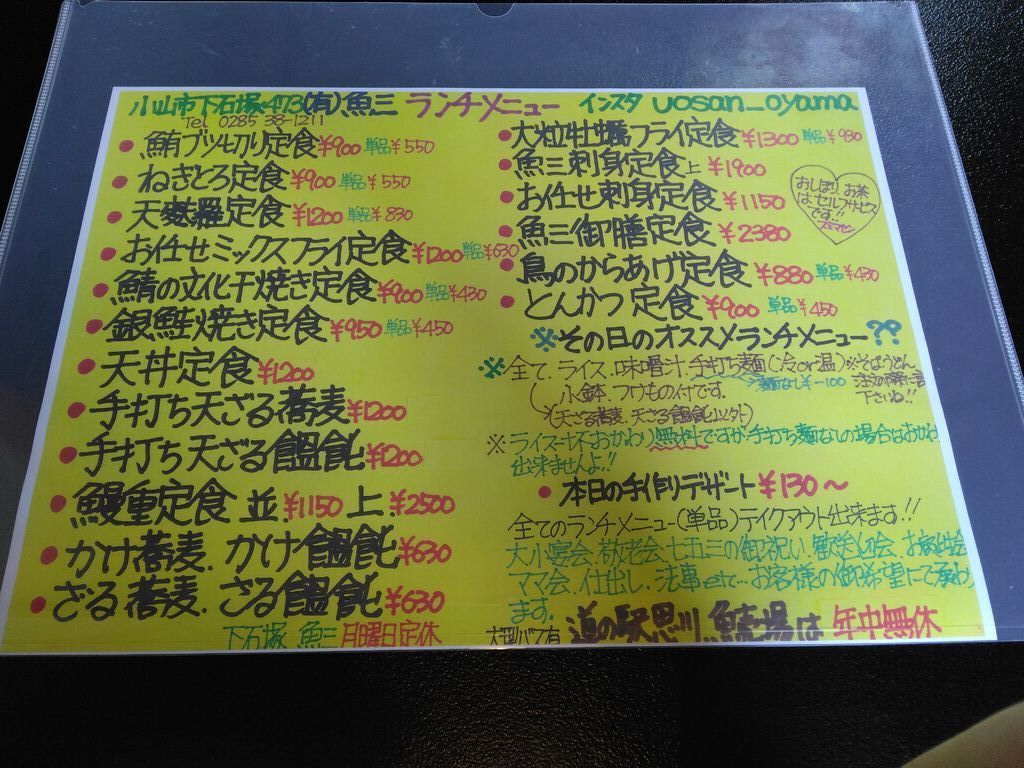 小山市下石塚473(有)魚三 ランチメニュー インスタ uosan_oyama
Tel 0285 38-1211
・鮪ブツ切り定食¥900 単品¥550
・ねぎとろ定食¥900 単品¥550
・天麩羅定食¥1200 単品¥830
・お任せミックスフライ定食¥1200単品¥630
・鯖の文化干焼き定食¥900 単品¥430
・銀鮭焼き定食¥950 単品¥450
・天丼定食¥1200
・手打ち天ざる蕎麦¥1200
・手打ち天ざる饂飩¥1200
・鰻重定食 並¥1150 上¥2500
・かけ蕎麦.かけ饂飩¥630
・ざる蕎麦.ざる饂飩¥630
下石塚 魚三 月曜日定休
・大粒牡蠣フライ定食¥1300 単品¥930
・魚三刺身定食上 ¥1900
・お任せ刺身定食 ¥1150
・魚三御膳定食 ¥2380
・鳥のからあげ定食 ¥880 単品¥430
・とんかつ定食 ¥900 単品¥450
おしぼり お茶
はセルフサービス
です!!
スミマセン
※その日のオススメランチメニュー??
※全て、ライス、味噌汁、手打ち麺(冷or温)※そばうどん
注文の際に言
下さいね!!
→麺なし¥-100
小鉢、つけもの付です。
(天ざる蕎麦、天ざる饂飩以外)
※ライス一杯おかわり無料ですが手打ち麺なしの場合はおかわ
出来ませんよ!!
・本日の手作りデザート¥130〜
全てのランチメニュー(単品)テイクアウト出来ます!!
大小宴会、敬老会、七五三の御祝い、歓送迎会、お食事会
ママ会、仕出し、法事etc…お客様の御希望にて承わ
ます。
大型バス有 道の駅思川 魚三売場は 年中無休